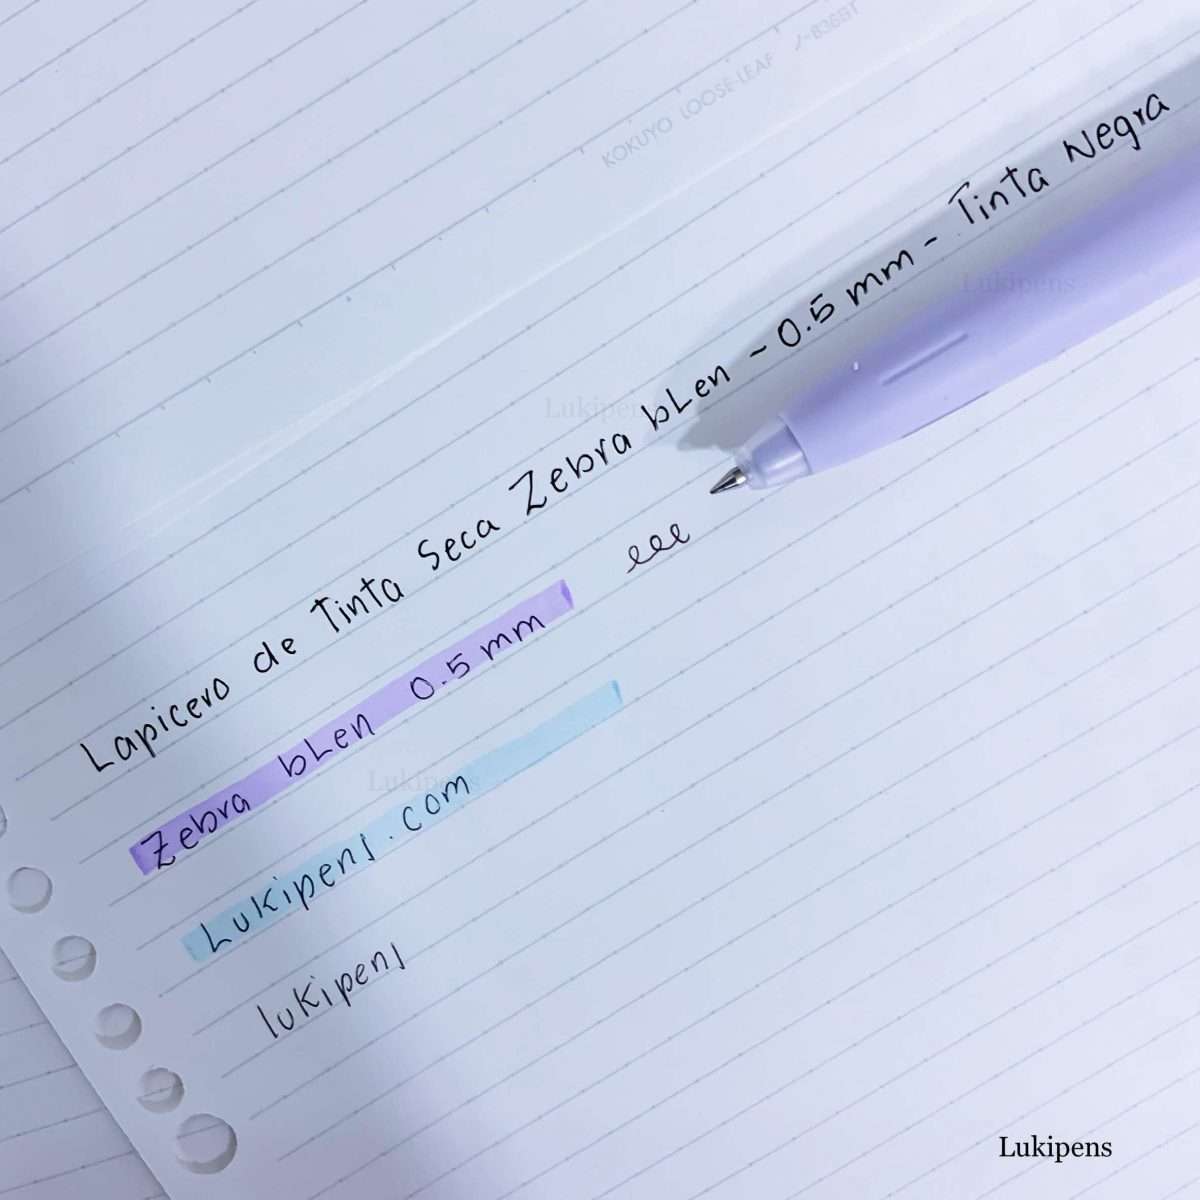 KOKUYO LOOSE-LEAF ノ-836BT
Lapicero de Tinta Seca Zebra bLen - 0.5 mm - Tinta Negra
Zebra bLen 0.5 mm
Lukipens.com
lukipens
Lukipens
Lukipens
Lukipens
Lukipens